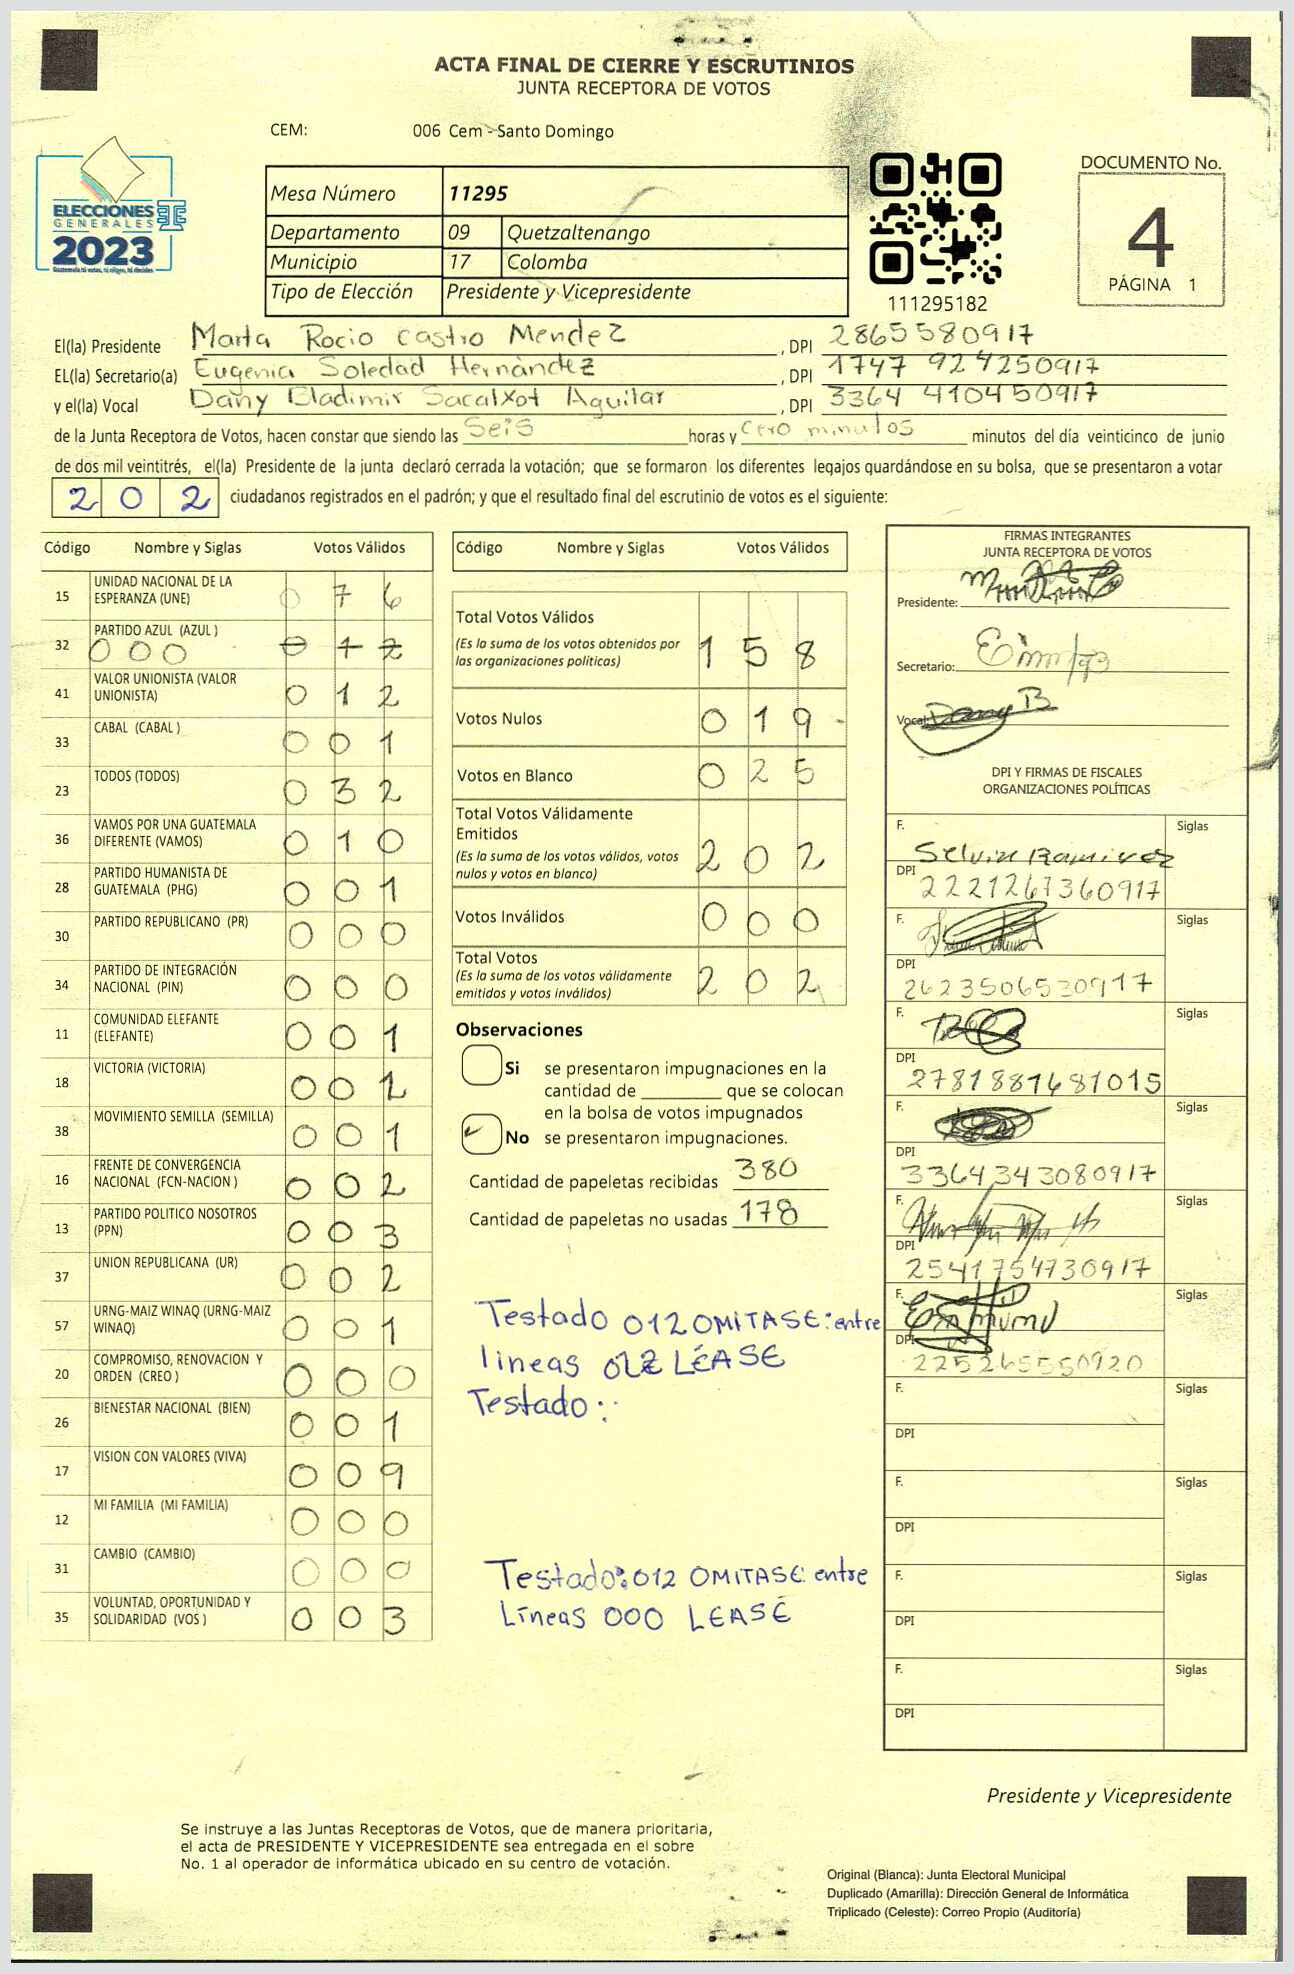 ACTA FINAL DE CIERRE Y ESCRUTINIOS
JUNTA RECEPTORA DE VOTOS
CEM: 006 Cem - Santo Domingo
ELECCIONES
GENERALES
2023
Guatemala tú votas, tú eliges, tú decides
Mesa Número 11295
Departamento 09 Quetzaltenango
Municipio 17 Colomba
Tipo de Elección Presidente y Vicepresidente
111295182
DOCUMENTO No.
4
PÁGINA 1
El(la) Presidente Marta Rocio Castro Mendez, DPI 2865580917
EL(la) Secretario(a) Eugenia Soledad Hernàndez, DPI 1747 924250917
y el(la) Vocal Dany Bladimir Sacalxot Aguilar, DPI 3364 410450917
de la Junta Receptora de Votos, hacen constar que siendo las Seis horas y Cero minutos minutos del día veinticinco de junio
de dos mil veintitrés, el(la) Presidente de la junta declaró cerrada la votación; que se formaron los diferentes legajos guardándose en su bolsa, que se presentaron a votar
202 ciudadanos registrados en el padrón; y que el resultado final del escrutinio de votos es el siguiente:
Código Nombre y Siglas Votos Válidos
15 UNIDAD NACIONAL DE LA
ESPERANZA (UNE) 0 7 6
32 PARTIDO AZUL (AZUL )
000 0 1 2
41 VALOR UNIONISTA (VALOR
UNIONISTA) 0 1 2
33 CABAL (CABAL ) 0 0 1
23 TODOS (TODOS) 0 3 2
36 VAMOS POR UNA GUATEMALA
DIFERENTE (VAMOS) 0 1 0
28 PARTIDO HUMANISTA DE
GUATEMALA (PHG) 0 0 1
30 PARTIDO REPUBLICANO (PR) 0 0 0
34 PARTIDO DE INTEGRACIÓN
NACIONAL (PIN) 0 0 0
11 COMUNIDAD ELEFANTE
(ELEFANTE) 0 0 1
18 VICTORIA (VICTORIA) 0 0 2
38 MOVIMIENTO SEMILLA (SEMILLA) 0 0 1
16 FRENTE DE CONVERGENCIA
NACIONAL (FCN-NACION ) 0 0 2
13 PARTIDO POLITICO NOSOTROS
(PPN) 0 0 3
37 UNION REPUBLICANA (UR) 0 0 2
57 URNG-MAIZ WINAQ (URNG-MAIZ
WINAQ) 0 0 1
20 COMPROMISO, RENOVACION Y
ORDEN (CREO ) 0 0 0
26 BIENESTAR NACIONAL (BIEN) 0 0 1
17 VISION CON VALORES (VIVA) 0 0 9
12 MI FAMILIA (MI FAMILIA) 0 0 0
31 CAMBIO (CAMBIO) 0 0 0
35 VOLUNTAD, OPORTUNIDAD Y
SOLIDARIDAD (VOS ) 0 0 3
Código Nombre y Siglas Votos Válidos
Total Votos Válidos
(Es la suma de los votos obtenidos por
las organizaciones políticas) 1 5 8
Votos Nulos 0 1 9
Votos en Blanco 0 2 5
Total Votos Válidamente
Emitidos
(Es la suma de los votos válidos, votos
nulos y votos en blanco) 2 0 2
Votos Inválidos 0 0 0
Total Votos
(Es la suma de los votos válidamente
emitidos y votos inválidos) 2 0 2
Observaciones
Si se presentaron impugnaciones en la
cantidad de ________ que se colocan
en la bolsa de votos impugnados
No se presentaron impugnaciones.
Cantidad de papeletas recibidas 380
Cantidad de papeletas no usadas 178
Testado 012 OMITASE: entre
lineas 012 LÉASE
Testado:
Testado: 012 OMITASE entre
Líneas 000 LEASE
FIRMAS INTEGRANTES
JUNTA RECEPTORA DE VOTOS
Presidente:
Secretario:
Vocal: Dany B
DPI Y FIRMAS DE FISCALES
ORGANIZACIONES POLÍTICAS
F. Selvin Ramirez Siglas
DPI 2221267360917
F. Siglas
DPI 2623506530917
F. Siglas
DPI 2781881681015
F. Siglas
DPI 3364343080917
F. Siglas
DPI 2541754730917
F. Siglas
DPI 225265550920
F. Siglas
DPI
F. Siglas
DPI
F. Siglas
DPI
F. Siglas
DPI
Presidente y Vicepresidente
Se instruye a las Juntas Receptoras de Votos, que de manera prioritaria,
el acta de PRESIDENTE Y VICEPRESIDENTE sea entregada en el sobre
No. 1 al operador de informática ubicado en su centro de votación.
Original (Blanca): Junta Electoral Municipal
Duplicado (Amarilla): Dirección General de Informática
Triplicado (Celeste): Correo Propio (Auditoría)